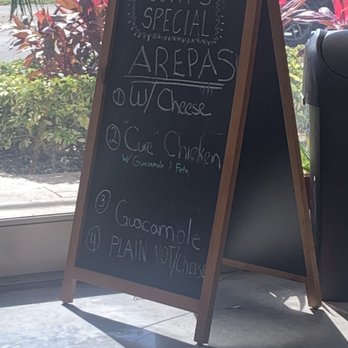 SPECIAL
AREPAS
① W/ Cheese
② "Cure" Chicken
W/ Guacamole & Feta
③ Guacamole
④ PLAIN NOT/CHEESE